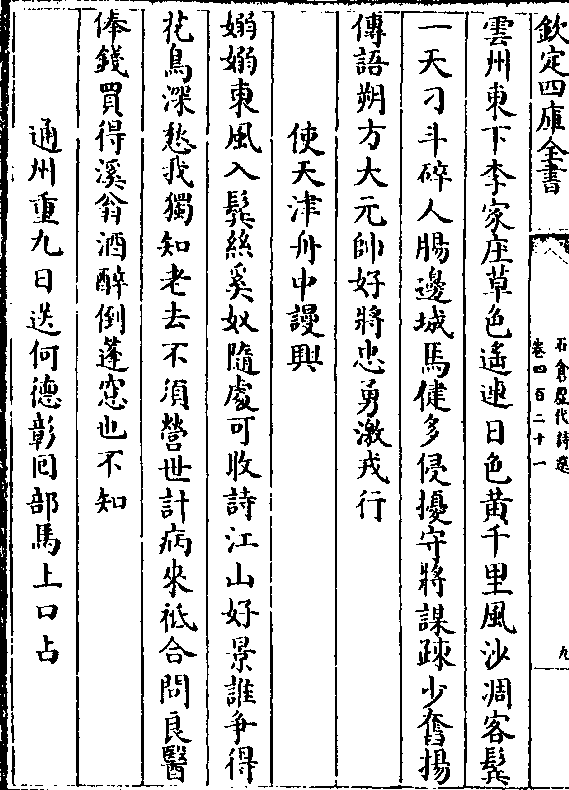 欽定四庫全書
石倉歷代詩選
卷四百二十一
九
雲州東下李家庄草色遙連日色黃千里風沙凋客鬂
一天刁斗碎人腸邊城馬健多侵擾守將謀疎少奮揚
傳語朔方大元帥好將忠勇激戎行
使天津舟中謾興
嫋嫋東風入鬂絲奚奴隨處可收詩江山好景誰爭得
花鳥深愁我獨知老去不須營世計病來祗合問良醫
俸錢買得溪翁酒醉倒蓬窓也不知
通州重九日送何德彰囘部馬上口占